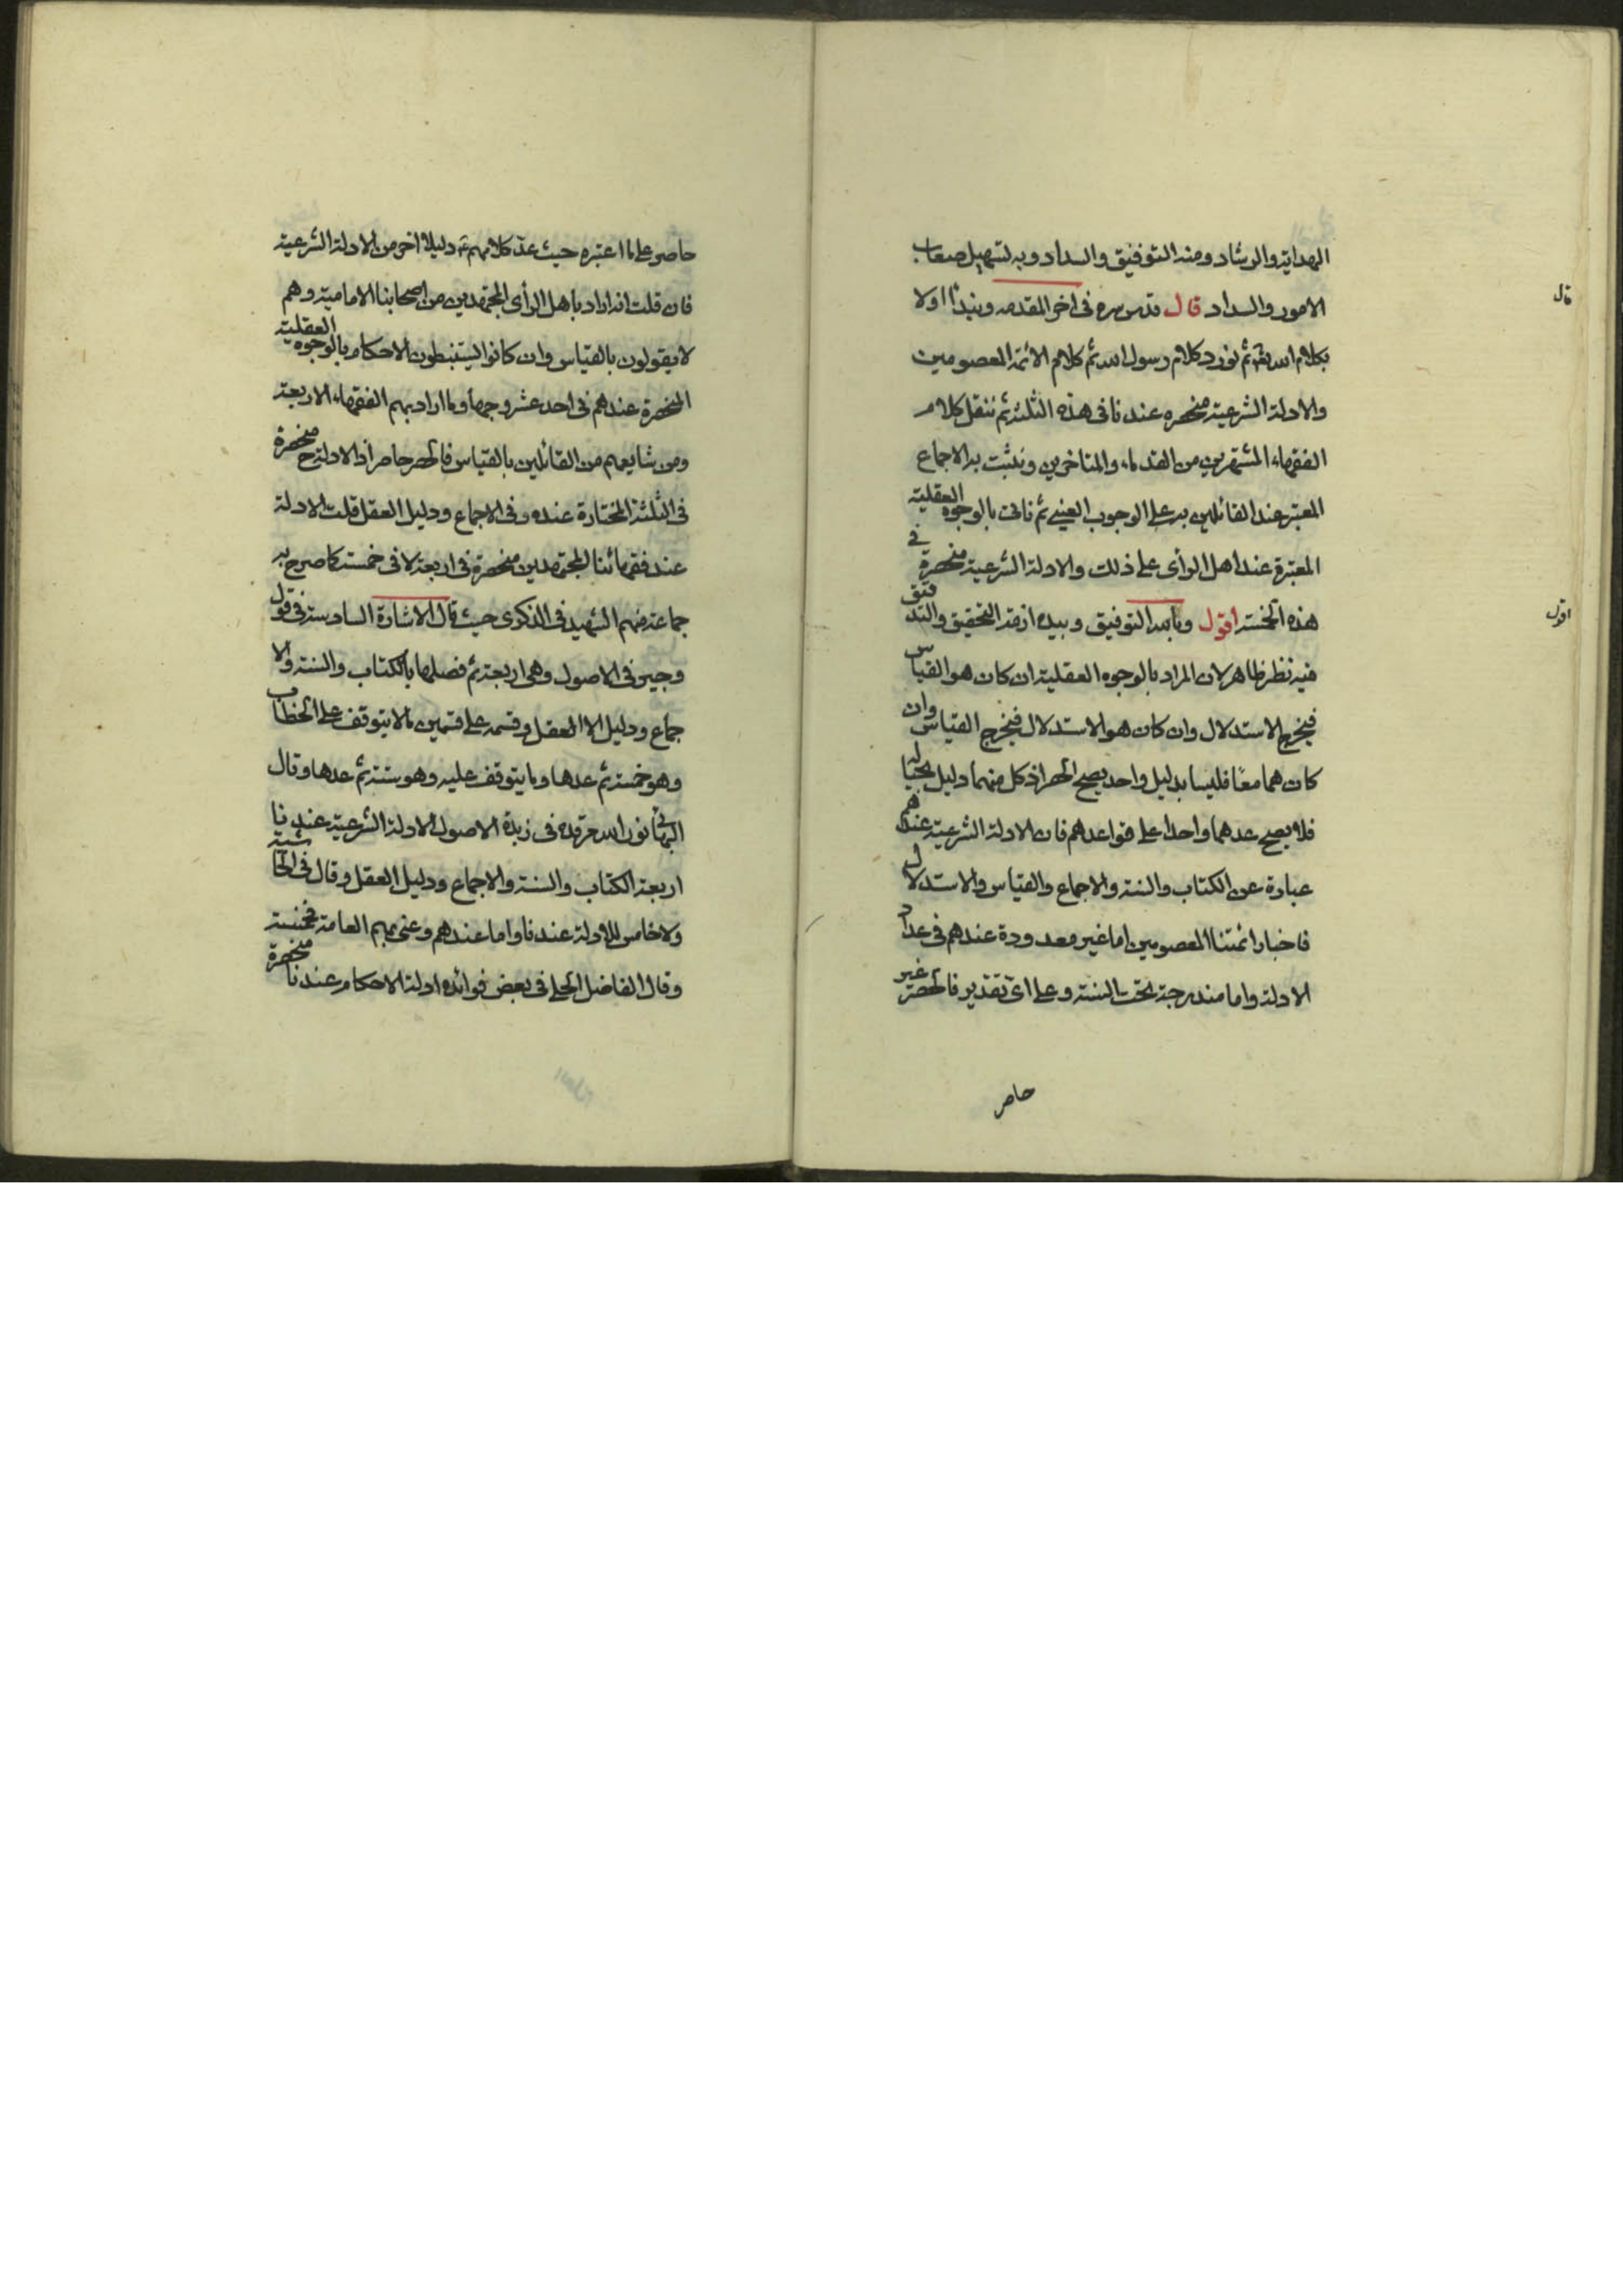 الهداية والرشاد ومنه التوفيق والسداد وبه لتسهيل صعاب
قال
الامور والسداد قال قدس سره فى اخر المقدمه ونبدأ اولا
بكلام الله تعالى ثم نورد كلام رسول الله ثم كلام الائمة المعصومين
والادلة الشرعية منحصره عندنا فى هذه الثلثة ثم ننقل كلام
الفقهاء المشتهرين من القدماء والمتاخرين ونثبت به الاجماع
المعتبر عند القائلين به على الوجوب العينى ثم ناتى بالوجوه العقلية
المعتبرة عند اهل الرأى على ذلك والادلة الشرعية منحصرة فى
اقول
هذه الخمسة اقول وبالله التوفيق وبيده ازمة التحقيق والتدقيق
فيه نظر ظاهر لان المراد بالوجوه العقلية ان كان هو القياس
فيخرج الاستدلال وان كان هو الاستدلال فيخرج القياس وان
كان هما معًا فليسا بدليل واحد يصح الحصر اذ كل منهما دليل بحياله
فلا يصح عدهما واحدا على قواعدهم فان الادلة الشرعية عندهم
عبارة عن الكتاب والسنة والاجماع والقياس والاستدلال
فاخبار ائمتنا المعصومين اما غير معدودة عندهم فى عداد
الادلة واما مندرجة تحت السنة وعلى اى تقدير فالحصر غير
حاصر
حاصر على ما اعتبره حيث عد كلامهم دليلا اخر من الادلة الشرعية
فان قلت انه اراد باهل الرأى المجتهدين من اصحابنا الامامية وهم
لا يقولون بالقياس وان كانوا يستنبطون الاحكام بالوجوه العقلية
المنحصرة عندهم فى احد عشر وجها وما اراد بهم الفقهاء الاربعة
ومن شايعهم من القائلين بالقياس فالحصر حاصر اذ الادلة ح منحصرة
فى الثلثة المختارة عنده وفى الاجماع ودليل العقل قلت الادلة
عند فقهائنا المجتهدين منحصرة فى اربعة لا فى خمسة كما صرح به
جماعة منهم الشهيد فى الذكرى حيث قال الاشارة السادسة فى قول
وجيز فى الاصول وهى اربعة ثم فصلها بالكتاب والسنة والا
جماع ودليل العقل وقسمه على قسمين ما لا يتوقف على الخطاب
وهو خمسة ثم عدها وما يتوقف عليه وهو ستة ثم عدها وقال
البهائى نور الله مرقده فى زبدة الاصول الادلة الشرعية عندنا
اربعة الكتاب والسنة والاجماع ودليل العقل وقال فى الحاشية
ولا خامس للادلة عندنا واما عندهم وعنى بهم العامة فخمسة
وقال الفاضل الحلى فى بعض فوائده ادلة الاحكام عندنا منحصرة